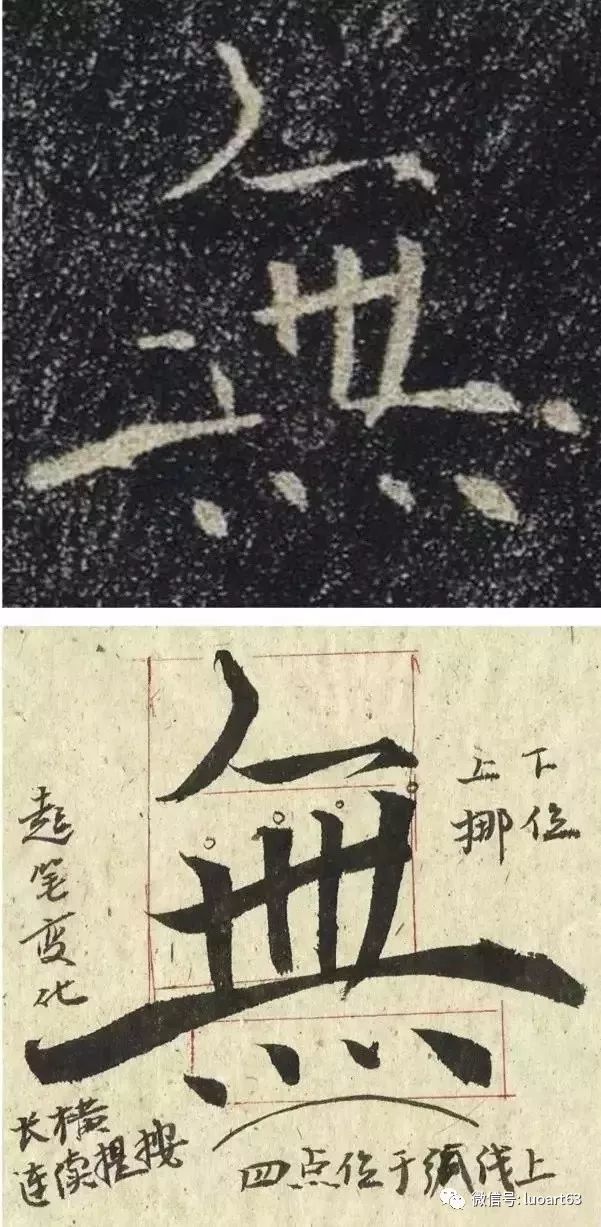 無
無
上下
挪位
起笔变化
长横
连续提按
四点位于弧线上
微信号: luoart63